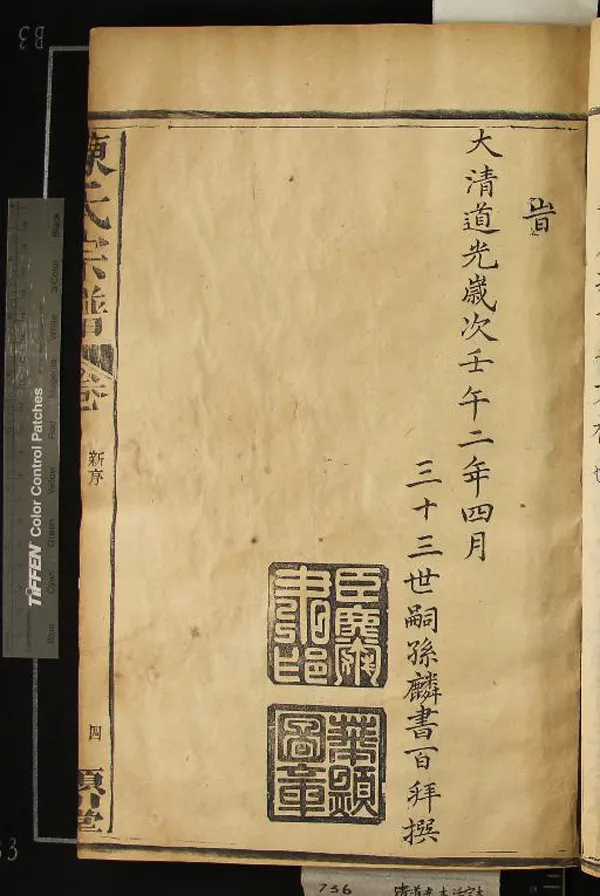 旹
大清道光歲次壬午二年四月
三十三世嗣孫麟書百拜撰
圖章
陳氏宗譜
卷
新序
四
堂
TIFFEN Color Control Patches
Blue Cyan Green Yellow Red Magenta White 3/Color Black
B3
736